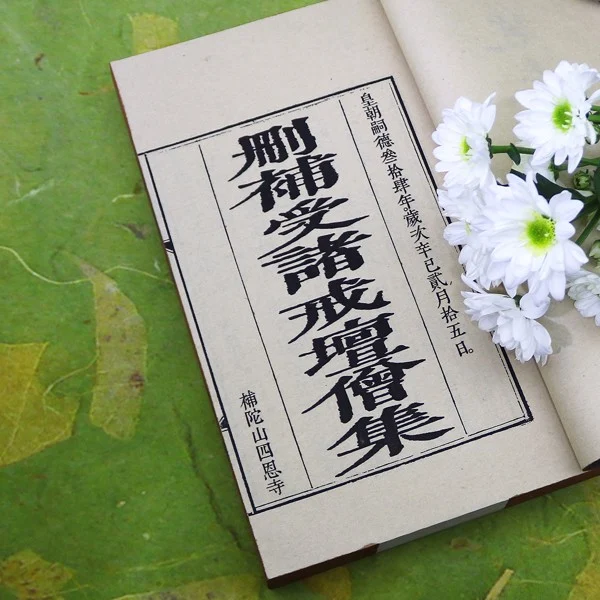 皇朝嗣德叁拾肆年。歲次辛巳貳月拾五日。
刪補受諸戒壇僧集
補陀山四恩寺